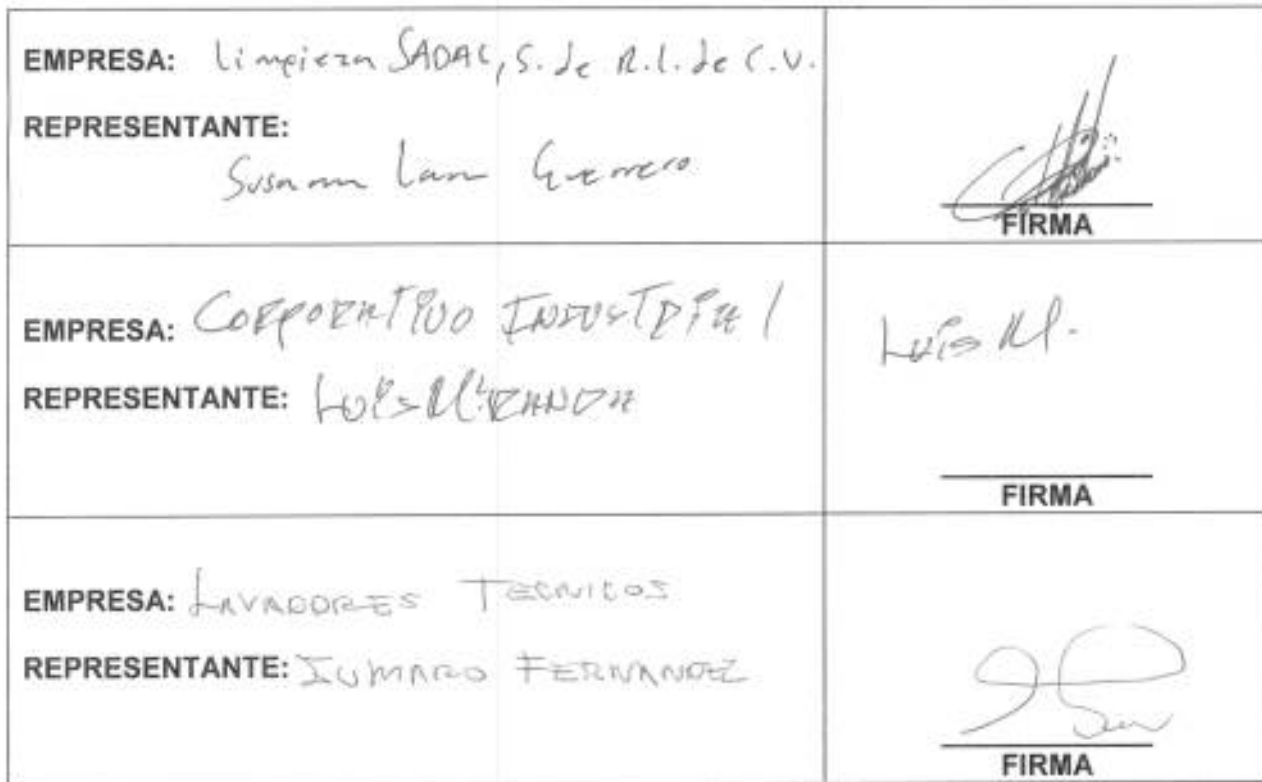 EMPRESA: Limpieza SADAC, S. de R.L. de C.V.
REPRESENTANTE:
Susana Guerrero
FIRMA
EMPRESA: CORPORATIVO INDUSTRIAL
REPRESENTANTE: LUIS MIRANDA
Luis M.
FIRMA
EMPRESA: LAVADORES TECNICOS
REPRESENTANTE: FERNANDEZ
FIRMA